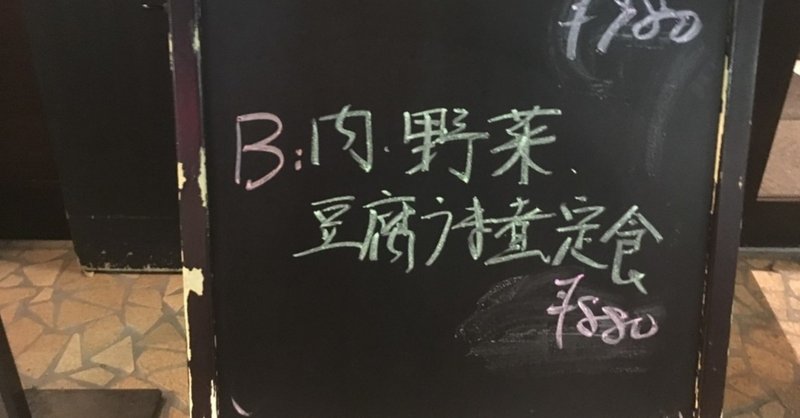 B:肉.野菜、
豆腐うま煮定食
¥880